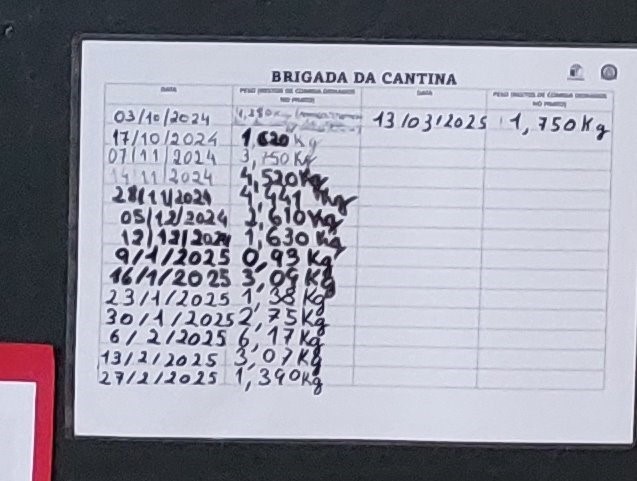 BRIGADA DA CANTINA
DATA PESO (RESTOS DE COMIDA DEIXADOS NO PRATO) DATA PESO (RESTOS DE COMIDA DEIXADOS NO PRATO)
03/10/2024 13/03/2025 1,750Kg
17/10/2024 1,620Kg
07/11/2024 3,750Kg
14/11/2024 4,520Kg
28/11/2024 4,441Kg
05/12/2024 2,610Kg
12/12/2024 1,630Kg
9/1/2025 0,93Kg
16/1/2025 3,09Kg
23/1/2025 1,38Kg
30/1/2025 2,75Kg
6/2/2025 6,17Kg
13/2/2025 3,07Kg
27/2/2025 1,390Kg